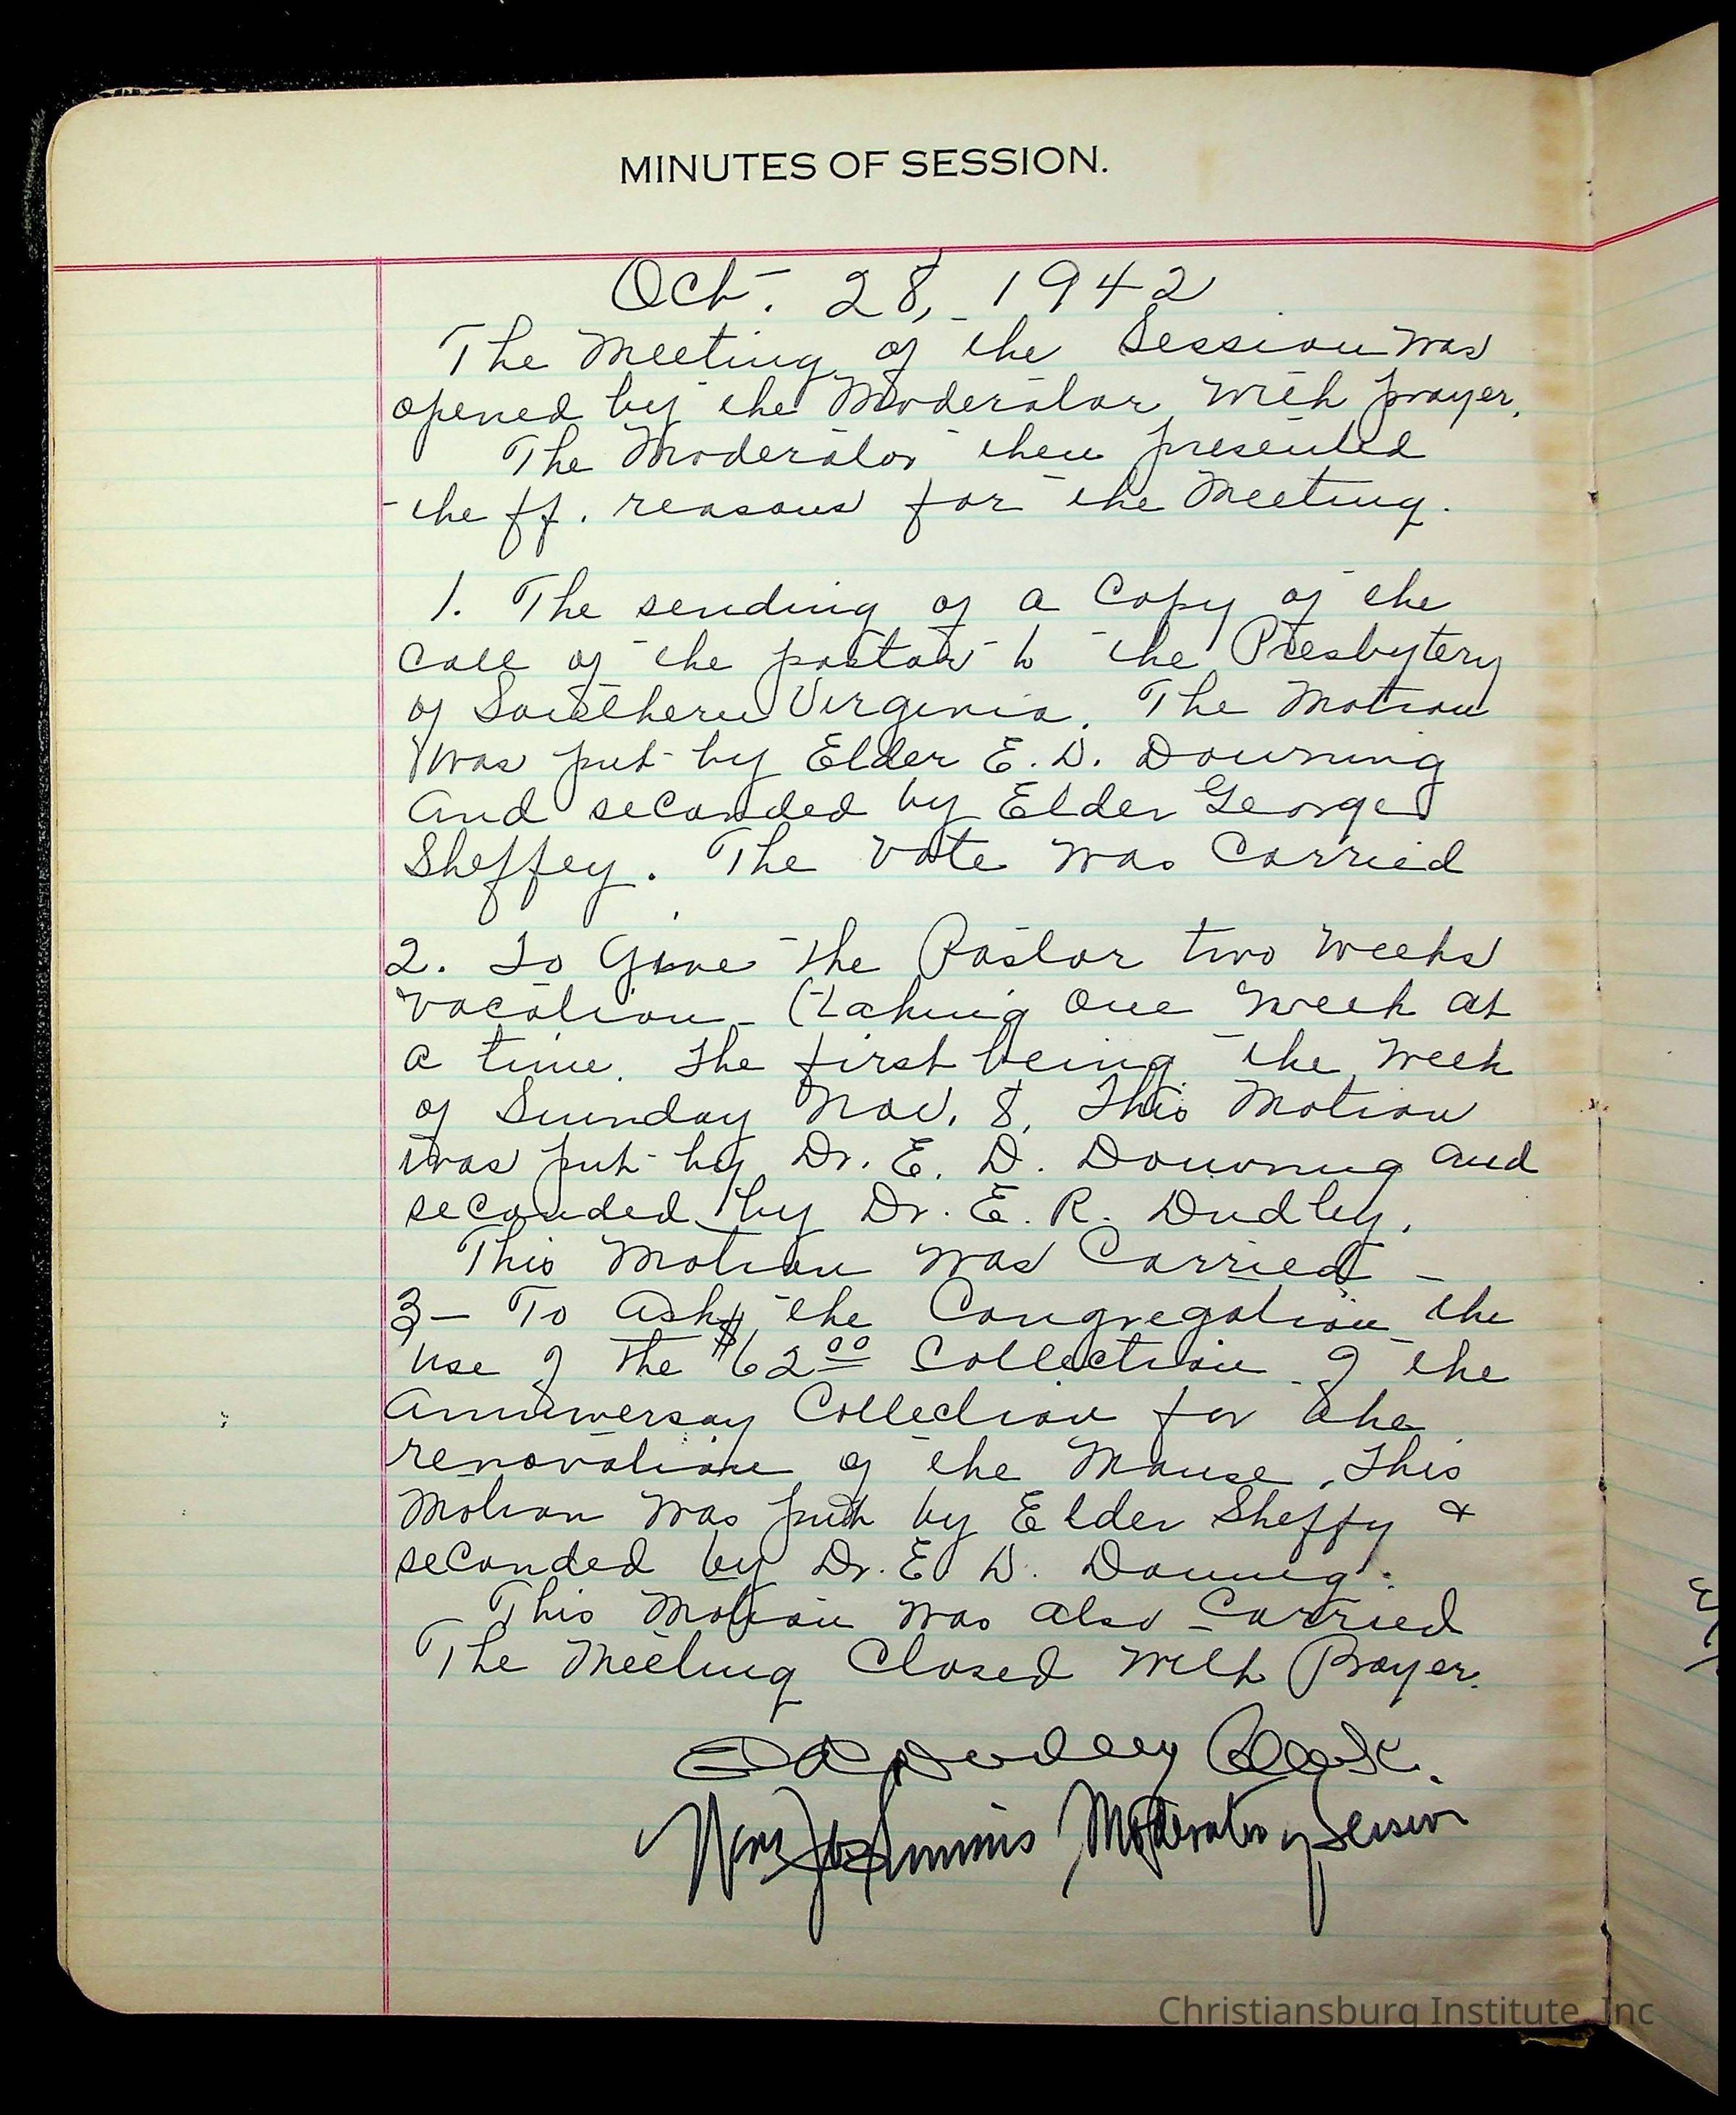 MINUTES OF SESSION.
Oct. 28, 1942
The Meeting of the Session was
opened by the Moderator with prayer.
The Moderator then presented
the ff. reasons for the Meeting.
1. The sending of a Copy of the
Call of the pastor to the Presbytery
of Southern Virginia. The Motion
was put by Elder E. D. Downing
and seconded by Elder George
Sheffey. The vote was Carried
2. To Give the Pastor two weeks
vacation - (taking One week at
a time. The first being the week
of Sunday Nov. 8. This Motion
was put by Dr. E. D. Downing and
seconded by Dr. E. R. Dudley.
This Motion was Carried -
3 - To Ask the Congregation the
use of the $62 00 Collection of the
Anniversay Collection for the
renovation of the Manse. This
Motion was put by Elder Sheffy &
seconded by Dr. E. D. Downing.
This Motion was also Carried
The Meeting Closed with Prayer.
E R Dudley Clerk.
Simmis Moderator of Session
Christiansburg Institute, Inc